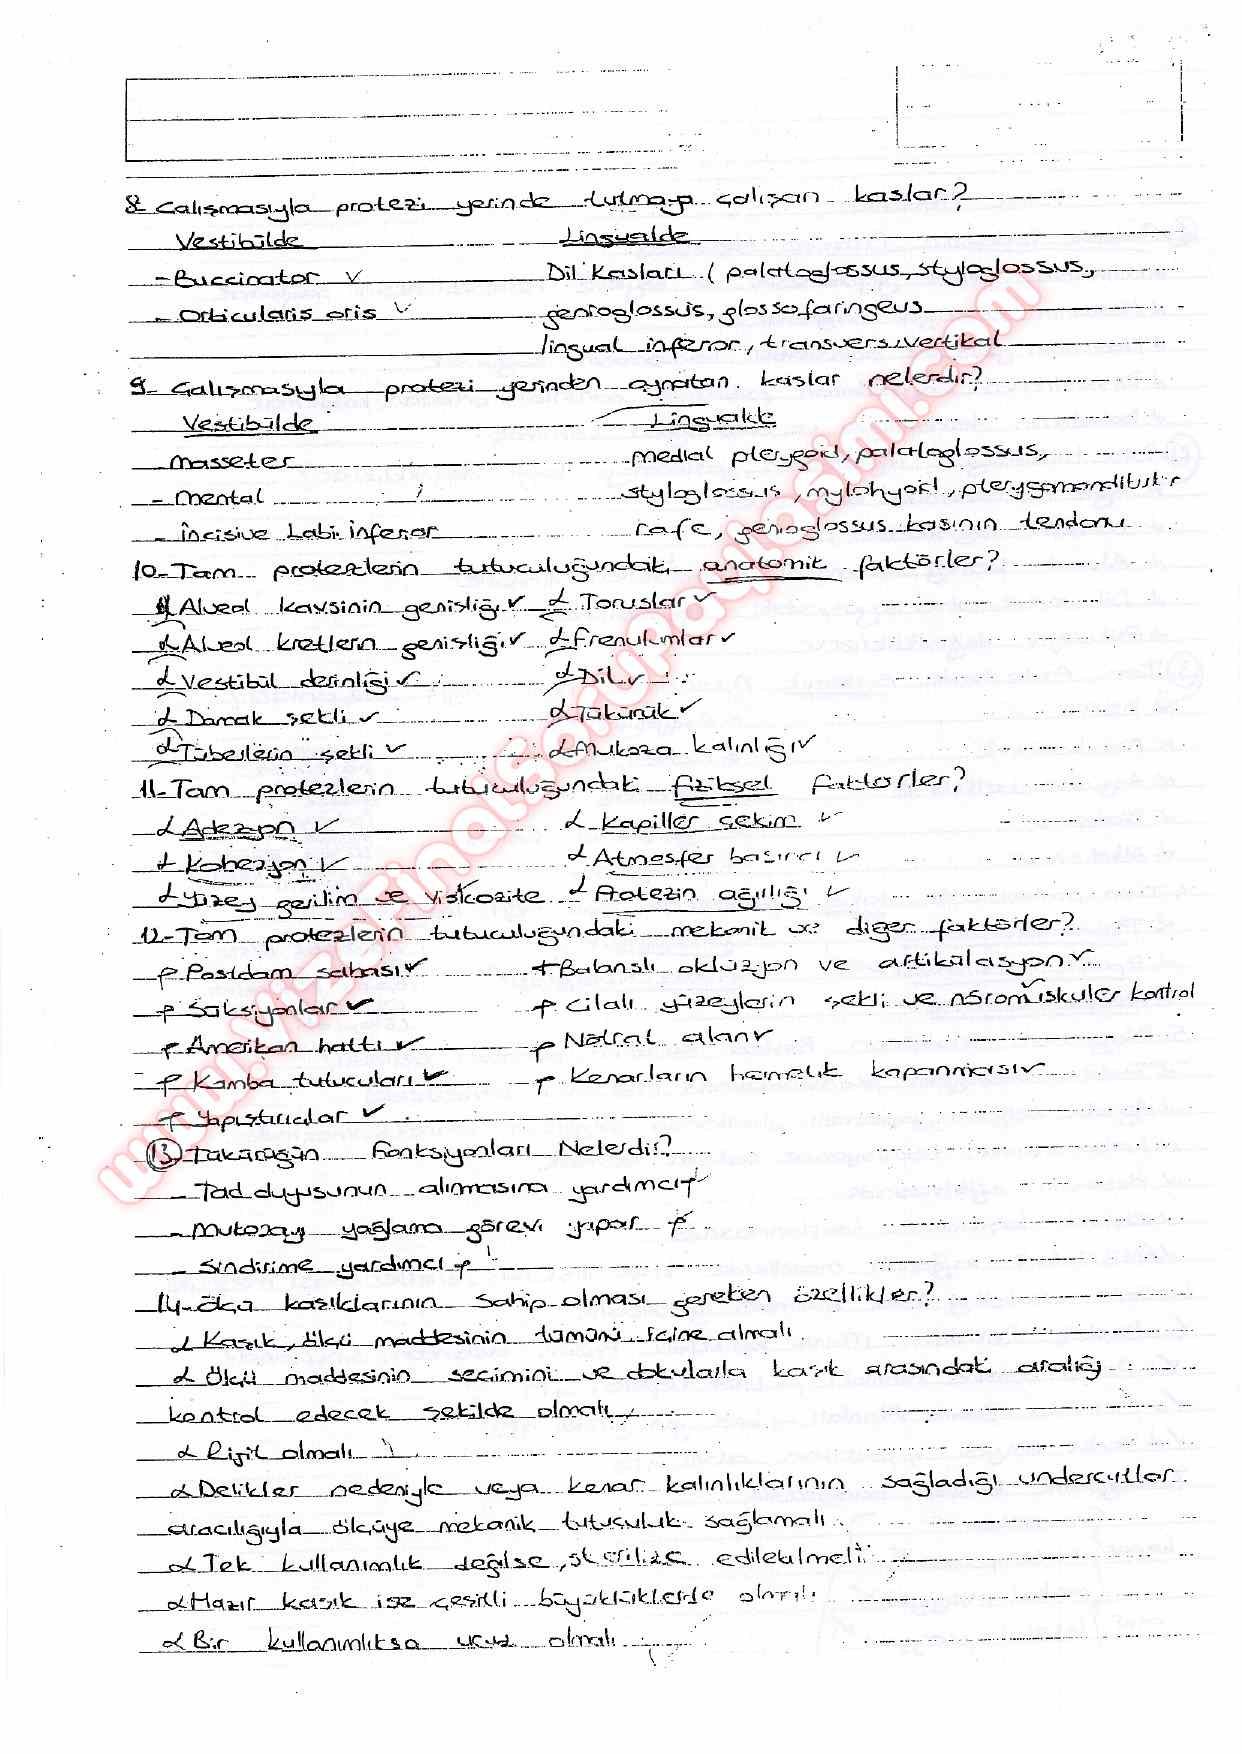 8- Çalışmasıyla protezi yerinde tutmaya çalışan kaslar?
Vestibülde Lingualde
- Buccinator Dil Kasları (palatoglossus, styloglossus,
- Orbicularis oris genioglossus, glossofaringeus
lingual inferior, transvers, vertikal
9- Çalışmasıyla protezi yerinden oynatan kaslar nelerdir?
Vestibülde Lingualde
- masseter medial pterygoid, palatoglossus,
- mental styloglossus, mylohyoid, pterygomandibular
- incisive Labi inferior rafe, genioglossus kasının tendonu
10- Tam protezlerin tutuculuğundaki anatomik faktörler?
Alveol kavsinin genişliği Toruslar
Alveol kretlerin genişliği Frenulumlar
Vestibül derinliği Dil
Damak şekli Tükürük
Tüberlerin şekli Mukoza kalınlığı
11- Tam protezlerin tutuculuğundaki fiziksel faktörler?
Adezyon Kapiller çekim
Kohezyon Atmosfer basıncı
Yüzey gerilim ve viskozite Protezin ağırlığı
12- Tam protezlerin tutuculuğundaki mekanik ve diğer faktörler?
Postdam sahası Balanslı oklüzyon ve artikülasyon
Saksiyonlar Cilalı yüzeylerin şekli ve nöromüsküler kontrol
Amerikan hattı Nötral alan
Kamba tutucuları Kenarların hermetik kapanması
Yapıştırıcılar
13) Tükürüğün Fonksiyonları Nelerdir?
- Tad duyusunun alınmasına yardımcı
- Mukozayı yağlama görevi yapar
- Sindirime yardımcı
14- Ölçü kaşıklarının sahip olması gereken özellikler?
Kaşık, ölçü maddesinin tümünü içine almalı
Ölçü maddesinin seçimini ve dokularla kaşık arasındaki aralığı
kontrol edecek şekilde olmalı
Rijit olmalı
Delikler nedeniyle veya kenar kalınlıklarının sağladığı undercutlar
aracılığıyla ölçüye mekanik tutuculuk sağlamalı
Tek kullanımlık değilse, sterilize edilebilmeli
Hazır kaşık ise çeşitli büyüklüklerde olmalı
Bir kullanımlıksa ucuz olmalı
www.vizefinalsorupaylasimi.com